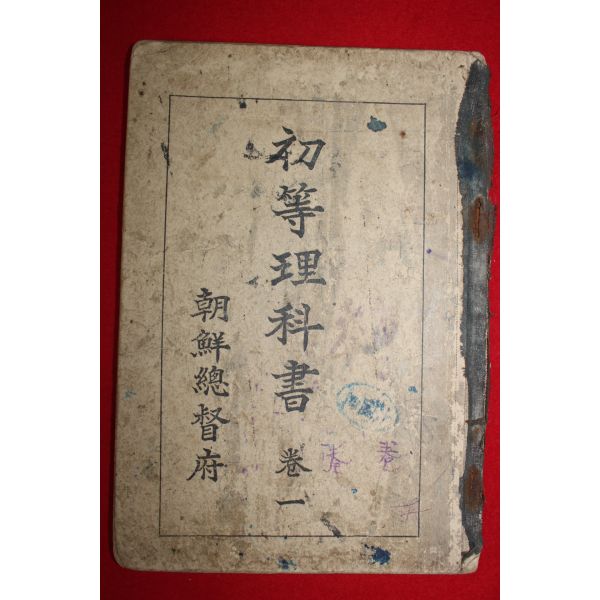 初等理科書 卷一
朝鮮總督府